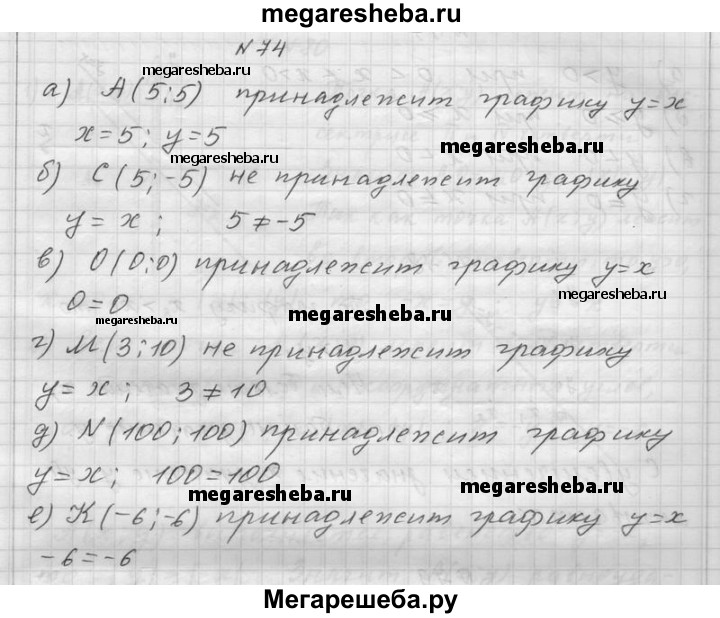 megaresheba.ru
N 74
megaresheba.ru
а) A(5;5) принадлежит графику y=x
x=5; y=5
megaresheba.ru
megaresheba.ru
б) C(5;-5) не принадлежит графику
y=x; 5≠-5
в) O(0;0) принадлежит графику y=x
megaresheba.ru
0=0
megaresheba.ru
megaresheba.ru
г) M(3;10) не принадлежит графику
y=x; 3≠10
д) N(100;100) принадлежит графику
y=x; 100=100
megaresheba.ru
megaresheba.ru
е) K(-6;-6) принадлежит графику y=x
-6=-6
Мегарешеба.ру